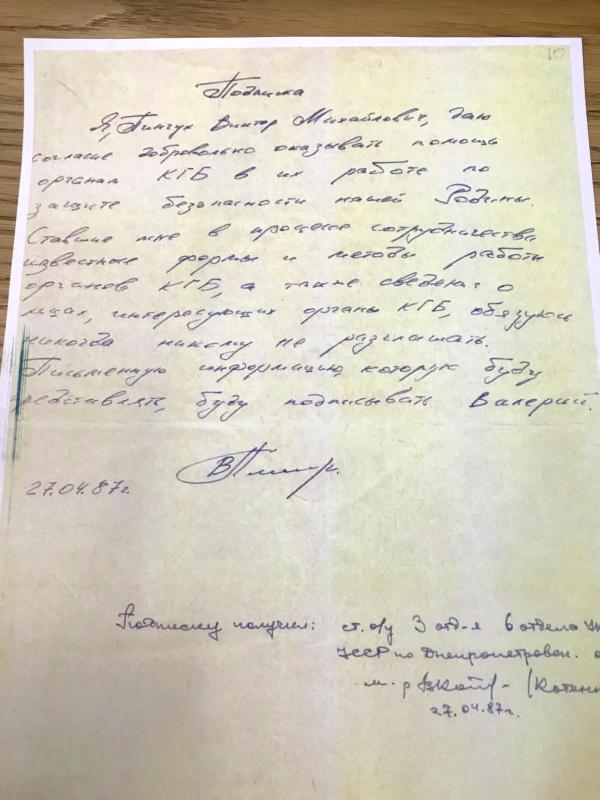 10
Подписка
Я, Пинчук Виктор Михайлович, даю
согласие добровольно оказывать помощь
органам КГБ в их работе по
защите безопасности нашей Родины.
Ставшие мне в процессе сотрудничества
известные формы и методы работы
органов КГБ, а также сведения о
лицах, интересующих органы КГБ, обязуюсь
никогда никому не разглашать.
Письменную информацию, которую буду
редставлять, буду подписывать Валерий.
27.04.87г.
Подписку получил: ст. о/у 3 отд-я 6 отдела
УССР по Днепропетровск.
м-р
27.04.87г.